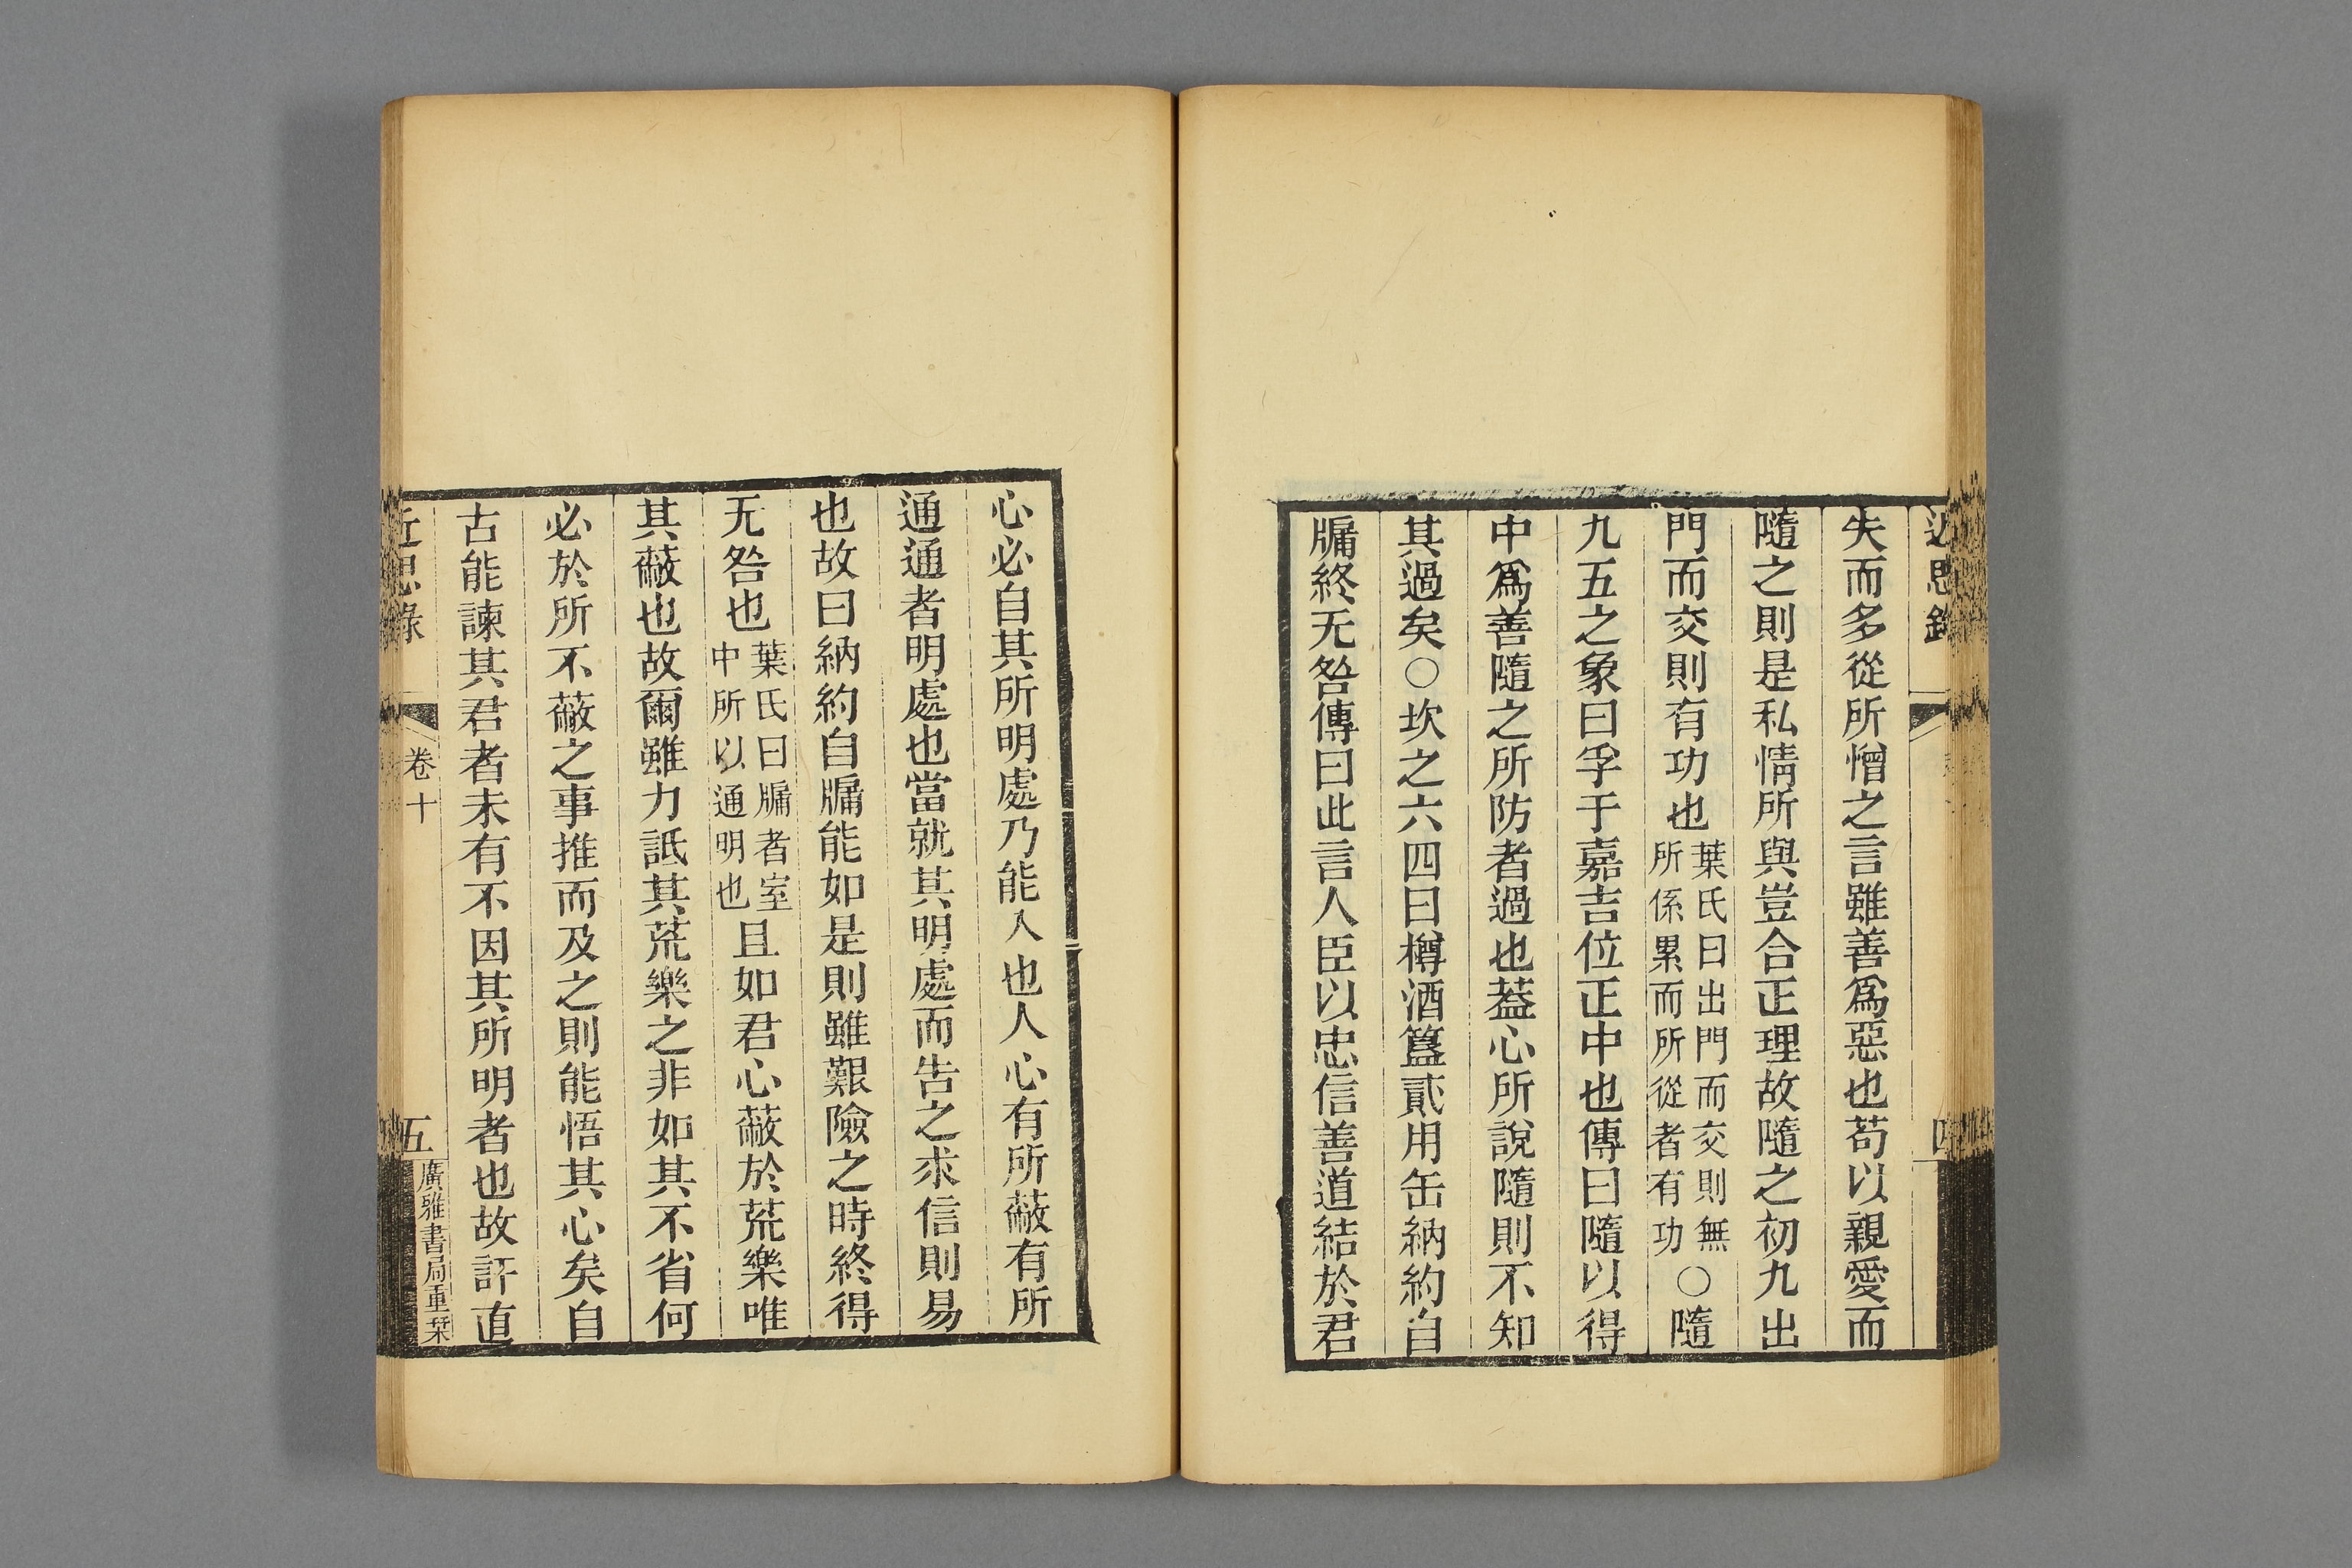 近思錄
四
失而多從所憎之言雖善爲惡也苟以親愛而
隨之則是私情所與豈合正理故隨之初九出
門而交則有功也葉氏曰出門而交則無所係累而所從者有功○隨
九五之象曰孚于嘉吉位正中也傳曰隨以得
中爲善隨之所防者過也葢心所說隨則不知
其過矣○坎之六四曰樽酒簋貳用缶納約自
牖終无咎傳曰此言人臣以忠信善道結於君
心必自其所明處乃能入也人心有所蔽有所
通通者明處也當就其明處而告之求信則易
也故曰納約自牖能如是則雖艱險之時終得
无咎也葉氏曰牖者室中所以通明也且如君心蔽於荒樂唯
其蔽也故爾雖力詆其荒樂之非如其不省何
必於所不蔽之事推而及之則能悟其心矣自
古能諫其君者未有不因其所明者也故訐直
近思錄
卷十
五
廣雅書局重栞